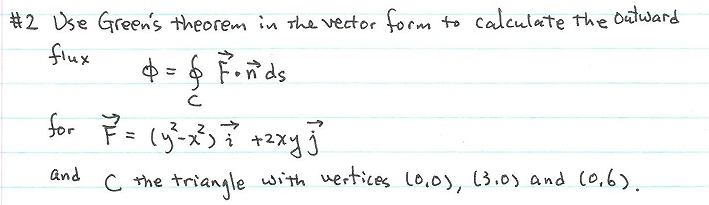 #2 Use Green's theorem in the vector form to calculate the outward
flux ϕ = ∮_C F⃗·n⃗ ds
for F⃗ = (y²-x²) i⃗ +2xy j⃗
and C the triangle with vertices (0,0), (3,0) and (0,6).